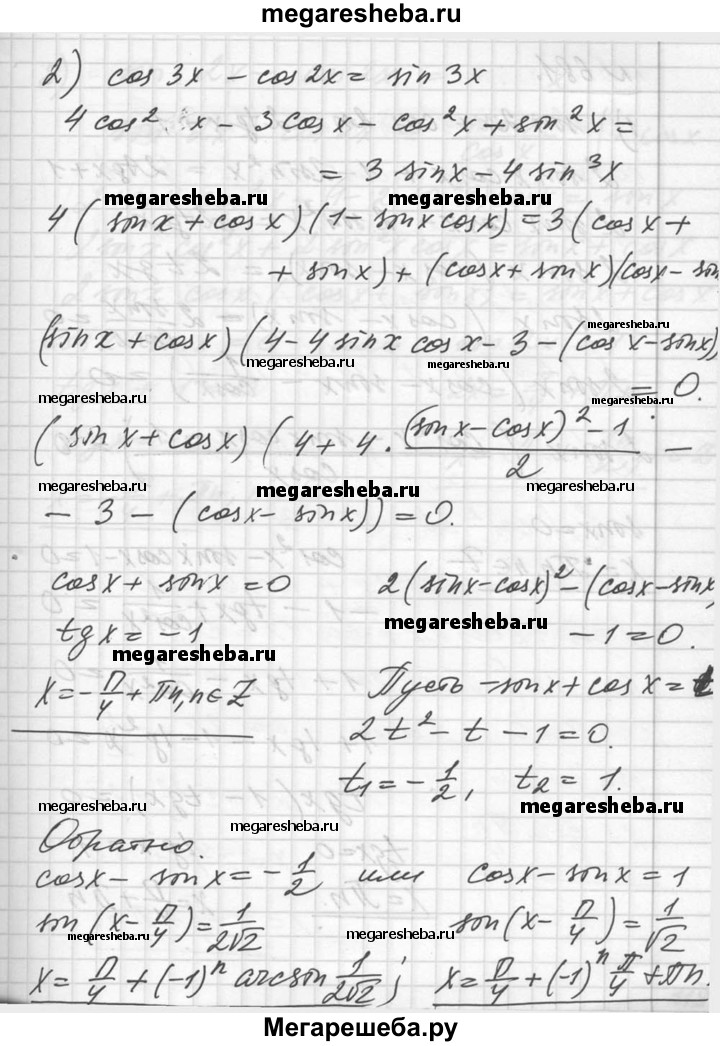 megaresheba.ru
2) cos 3x - cos 2x = sin 3x
4 cos² x - 3 cos x - cos² x + sin² x =
= 3 sin x - 4 sin³ x
megaresheba.ru megaresheba.ru
4 ( sin x + cos x ) (1 - sin x cos x) = 3 ( cos x +
+ sin x) + (cos x + sin x)(cos x - sin
megaresheba.ru
(sin x + cos x) (4 - 4 sin x cos x - 3 - (cos x - sin x)
megaresheba.ru megaresheba.ru
= 0.
megaresheba.ru
( sin x + cos x) ( 4 + 4 · ((sin x - cos x)² - 1)/2 -
megaresheba.ru megaresheba.ru
- 3 - ( cos x - sin x)) = 0.
cos x + sin x = 0 2 (sin x - cos x)² - (cos x - sin x,
megaresheba.ru
tg x = -1 - 1 = 0.
megaresheba.ru
x = -П/4 + Пn, n ∈ Z Пусть -sin x + cos x = t
2t² - t - 1 = 0.
t₁ = -1/2, t₂ = 1.
megaresheba.ru megaresheba.ru megaresheba.ru
Обратно.
cos x - sin x = -1/2 или cos x - sin x = 1
sin (x - П/4) = 1/(2√2) sin (x - П/4) = 1/√2
megaresheba.ru megaresheba.ru
x = П/4 + (-1)ⁿ arcsin 1/(2√2); x = П/4 + (-1)ⁿ П/4 + Пn.
Мегарешеба.ру